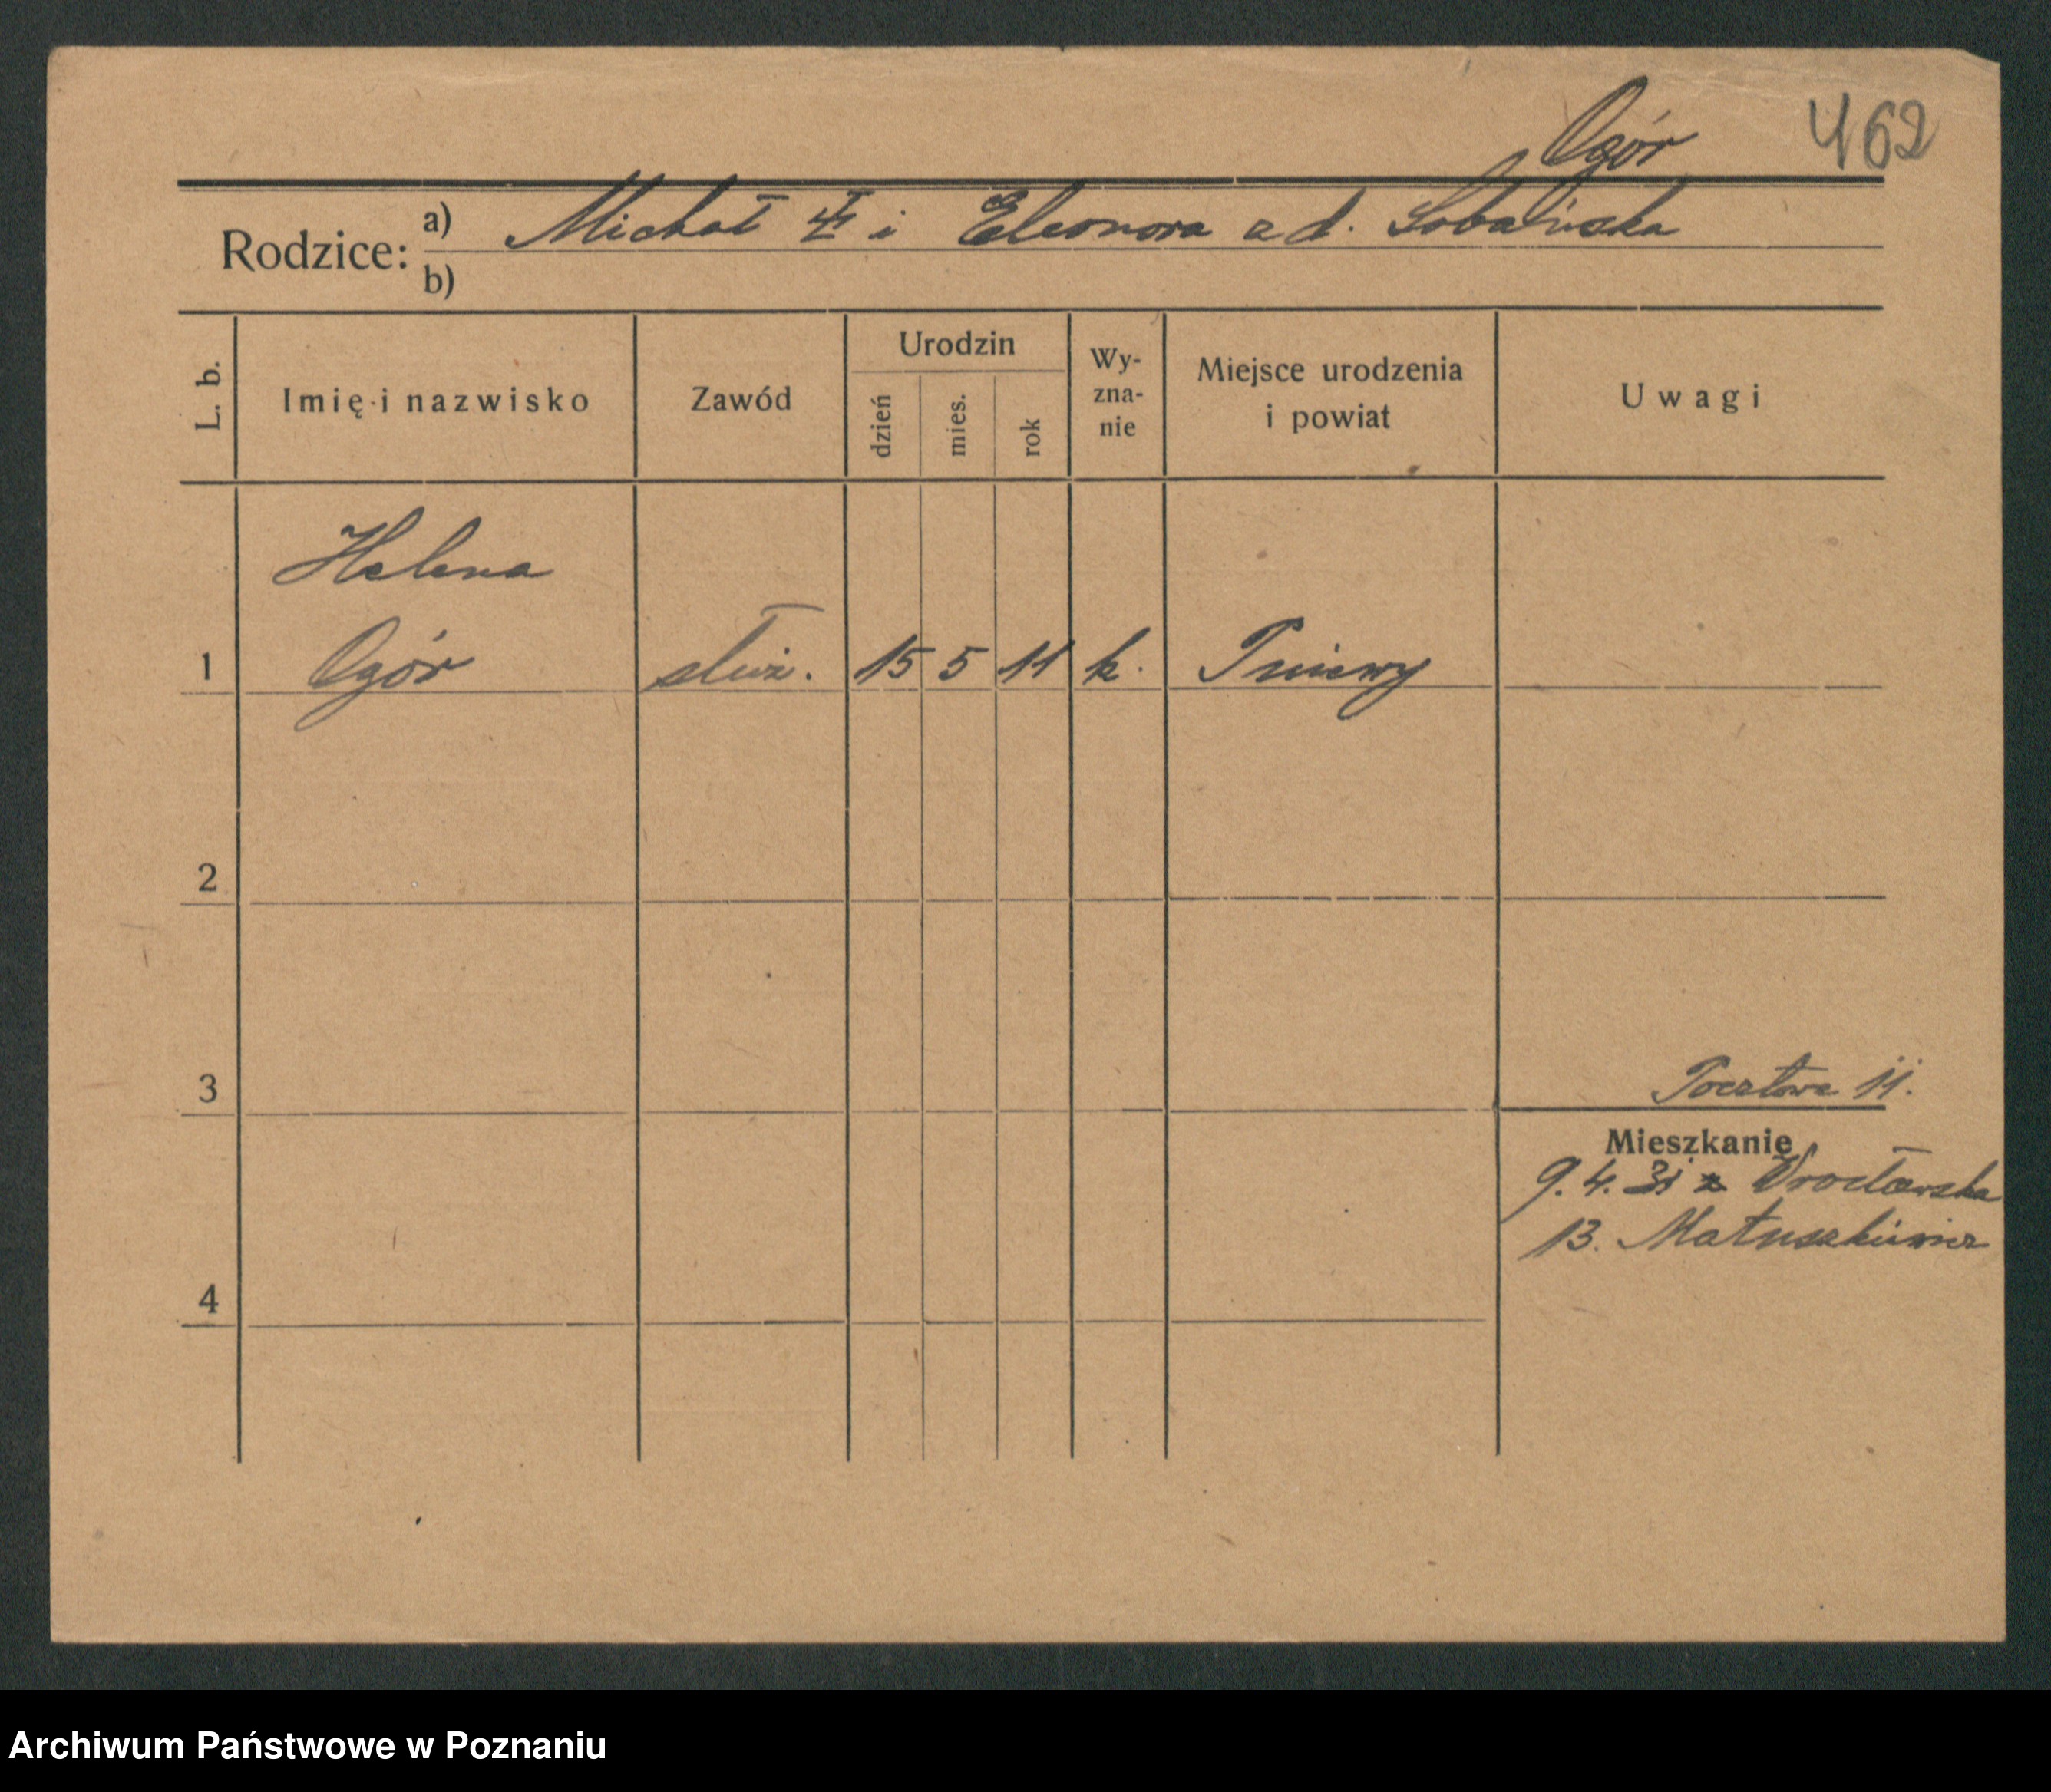 Ogór 462
Rodzice: a) Michał i Eleonora z d. Sobalińska
b)
L. b. Imię i nazwisko Zawód Urodzin dzień mies. rok Wy-zna-nie Miejsce urodzenia i powiat Uwagi
Helena
1 Ogór służ. 15 5 11 k. Pniewy
2
3 Pocztowa 11.
Mieszkanie
9. 4. 31 z Wrocławska
13. Matuszkiewicz
4
Archiwum Państwowe w Poznaniu